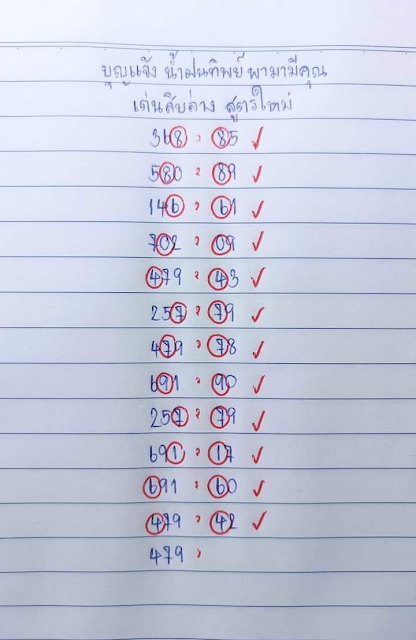 บุญแจ้ง น้ำฝนทิพย์ พามามีคุณ
เด่นสิบล่าง สูตรใหม่
368 : 85 ✓
580 : 89 ✓
146 : 61 ✓
702 : 09 ✓
479 : 43 ✓
257 : 79 ✓
479 : 78 ✓
691 : 90 ✓
257 : 79 ✓
691 : 17 ✓
691 : 60 ✓
479 : 42 ✓
479 :